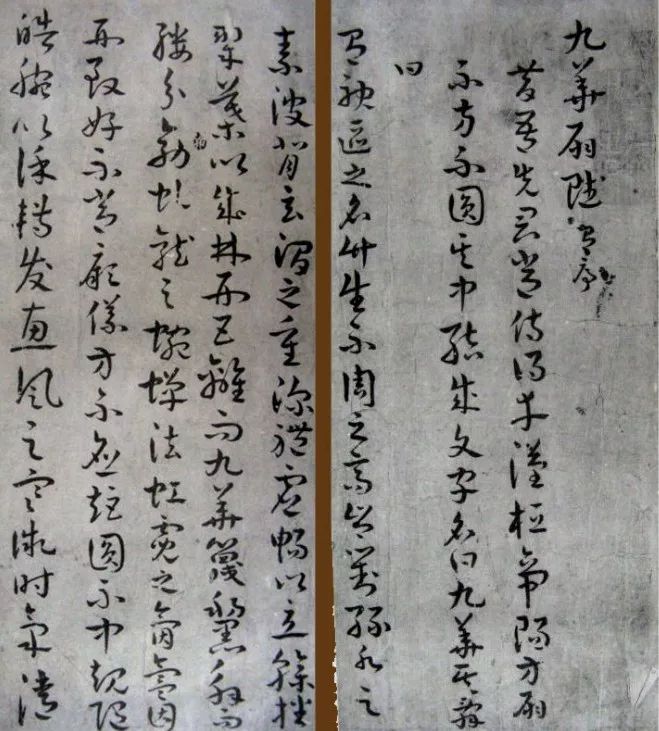 九華扇賦 有序
昔吾先君常侍得幸漢桓帝賜方扇
不方不圓其中結成文字名曰九華其辭
曰
有神區之名竹生不周之高岑對綠水之
素波背玄澗之重深體虛暢以立幹播
翠葉以成林形五離而九華篾氂解而
縷分効虬龍之蜿蟬法虹霓之氤氳因
形致好不常厥儀方不應矩圓不中規隨
皓腕以徐轉發惠風之寒微時氣清